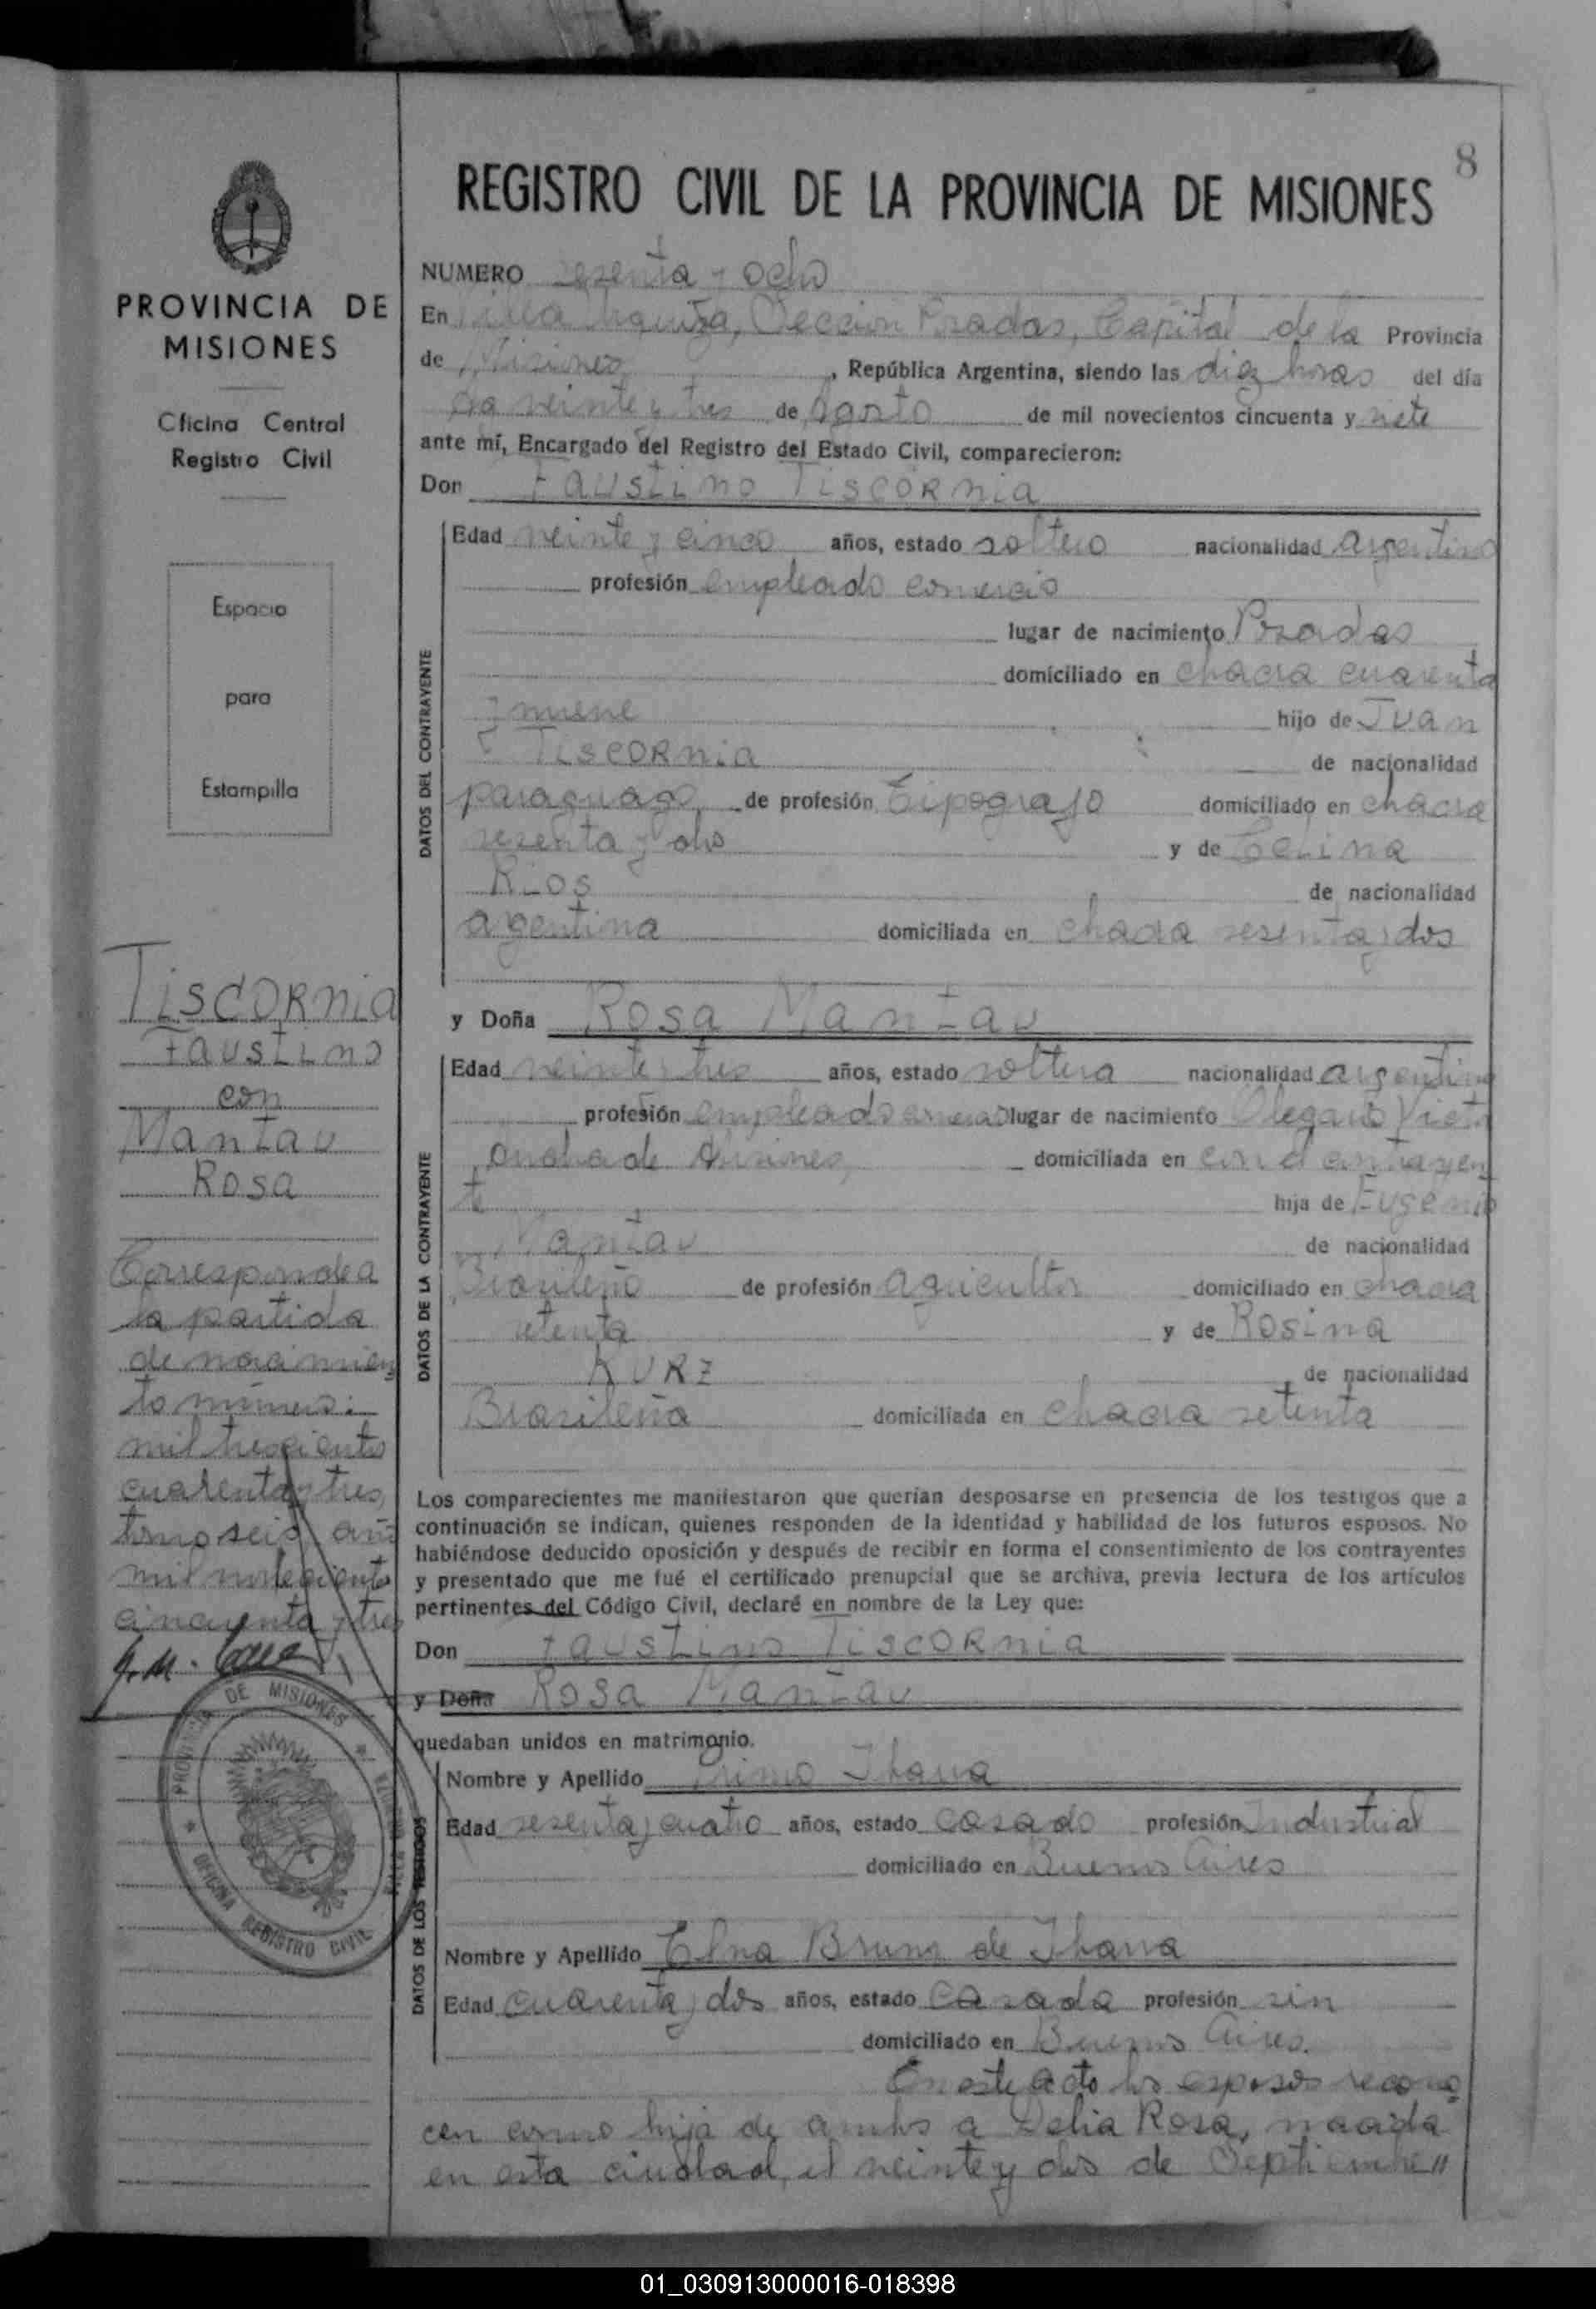 8
REGISTRO CIVIL DE LA PROVINCIA DE MISIONES
PROVINCIA DE
MISIONES
Oficina Central
Registro Civil
Espacio
para
Estampilla
NUMERO sesenta y ocho
En Villa Urquiza, Sección Posadas, Capital de la Provincia
de Misiones, República Argentina, siendo las diez horas del día
veinte y tres de Agosto de mil novecientos cincuenta y siete
ante mí, Encargado del Registro del Estado Civil, comparecieron:
Don Faustino Tiscornia
DATOS DEL CONTRAYENTE
Edad veinte y cinco años, estado soltero nacionalidad argentino
profesión empleado comercio
lugar de nacimiento Posadas
domiciliado en chacra cuarenta
y nueve hijo de Juan
Tiscornia de nacionalidad
paraguayo, de profesión Tipografo domiciliado en chacra
sesenta y dos y de Celina
Rios de nacionalidad
argentina domiciliada en chacra sesenta y dos
y Doña Rosa Mantau
DATOS DE LA CONTRAYENTE
Edad veinte y tres años, estado soltera nacionalidad argentina
profesión empleada comercio lugar de nacimiento Olegario Víctor
Andrade Misiones, domiciliada en con el contrayen
te hija de Eugenio
Mantau de nacionalidad
Brasileño de profesión agricultor domiciliado en chacra
setenta y de Rosina
Kurz de nacionalidad
Brasileña domiciliada en chacra setenta
Los comparecientes me manifestaron que querían desposarse en presencia de los testigos que a
continuación se indican, quienes responden de la identidad y habilidad de los futuros esposos. No
habiéndose deducido oposición y después de recibir en forma el consentimiento de los contrayentes
y presentado que me fué el certificado prenupcial que se archiva, previa lectura de los artículos
pertinentes del Código Civil, declaré en nombre de la Ley que:
Don Faustino Tiscornia
y Doña Rosa Mantau
quedaban unidos en matrimonio.
DATOS DE LOS TESTIGOS
Nombre y Apellido Primo
Edad sesenta y cuatro años, estado casado profesión Industrial
domiciliado en Buenos Aires
Nombre y Apellido Elna Bruno de
Edad cuarenta y dos años, estado casada profesión sin
domiciliado en Buenos Aires.
En este acto los esposos recono
cen como hija de ambos a Delia Rosa, nacida
en esta ciudad, el veinte y dos de Septiembre //
Tiscornia
Faustino
con
Mantau
Rosa
Corresponde a
la partida
de nacimien
to número:
mil trescientos
cuarenta y tres,
tomo seis, año
mil novecientos
cincuenta y tres
PROVINCIA DE MISIONES
OFICINA REGISTRO CIVIL
01_030913000016-018398